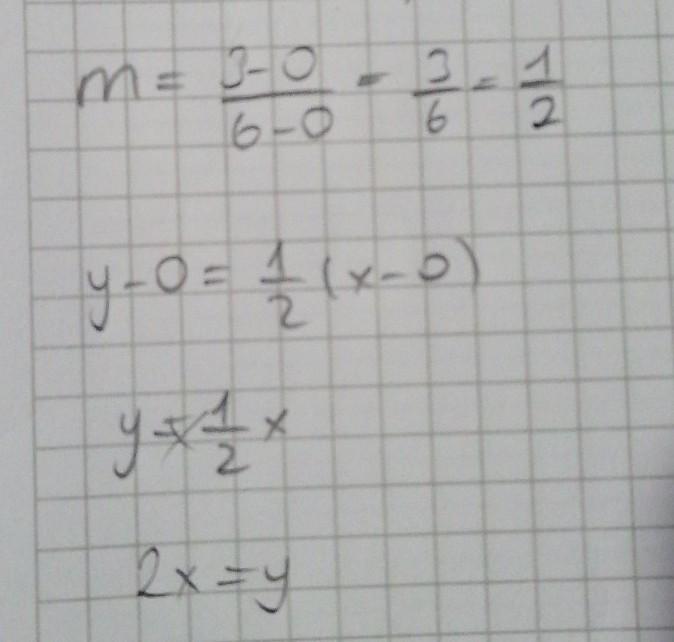 m = 3-0/6-0 = 3/6 = 1/2
y-0 = 1/2 (x-0)
y = 1/2 x
2x = y